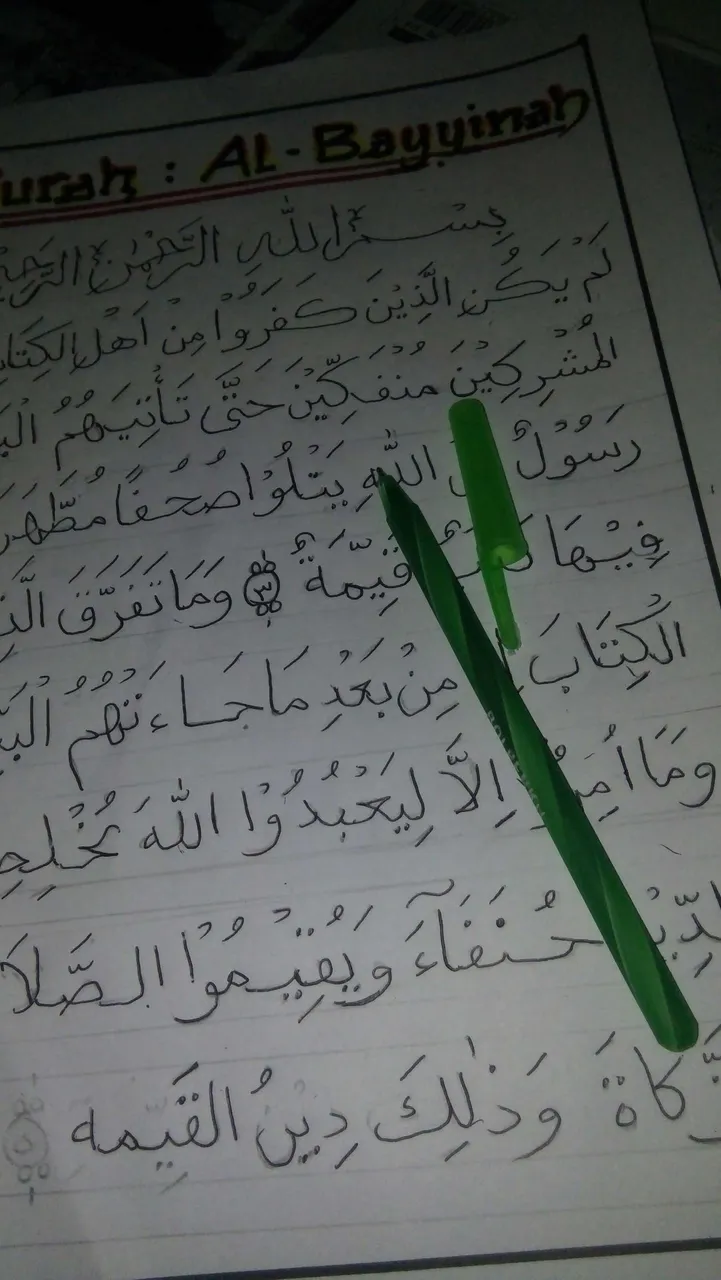 urah : AL-Bayyinah
بِسْمِ اللّٰهِ الرَّحْمٰنِ الرَّحِيْ
لَمْ يَكُنِ الَّذِيْنَ كَفَرُوْا مِنْ اَهْلِ الْكِتَا
الْمُشْرِكِيْنَ مُنْفَكِّيْنَ حَتَّى تَأْتِيَهُمُ الْبَ
رَسُوْلٌ اللّٰهِ يَتْلُوْا صُحُفًا مُطَهَّرَ
فِيْهَا قَيِّمَةٌ ٣ وَمَا تَفَرَّقَ الَّذِ
الْكِتَابَ مِنْ بَعْدِ مَا جَاءَتْهُمُ الْبَ
وَمَا اُمِرُ اِلَّا لِيَعْبُدُوْا اللّٰهَ مُخْلِصِ
حُنَفَآءَ وَيُقِيْمُوْا الصَّلَا
كَاةَ وَذٰلِكَ دِيْنُ الْقَيِّمَه